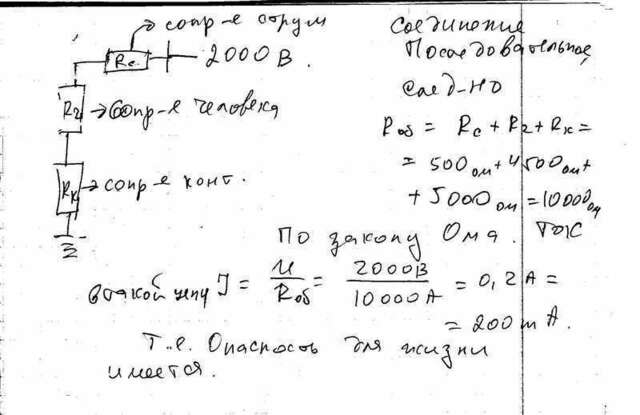 сопр-е струи
Rс
2000 В.
R2
сопр-е человека
Rк
сопр-е конт.
Соединение
Последовательное,
след-но
Rоб = Rс + R2 + Rк =
= 500 ом + 4500 ом +
+ 5000 ом = 10000 ом
По закону Ома. Ток
в такой цепи J = U / Rоб = 2000В / 10000А = 0,2 А =
= 200 mA.
Т.е. Опасность для жизни
имеется.